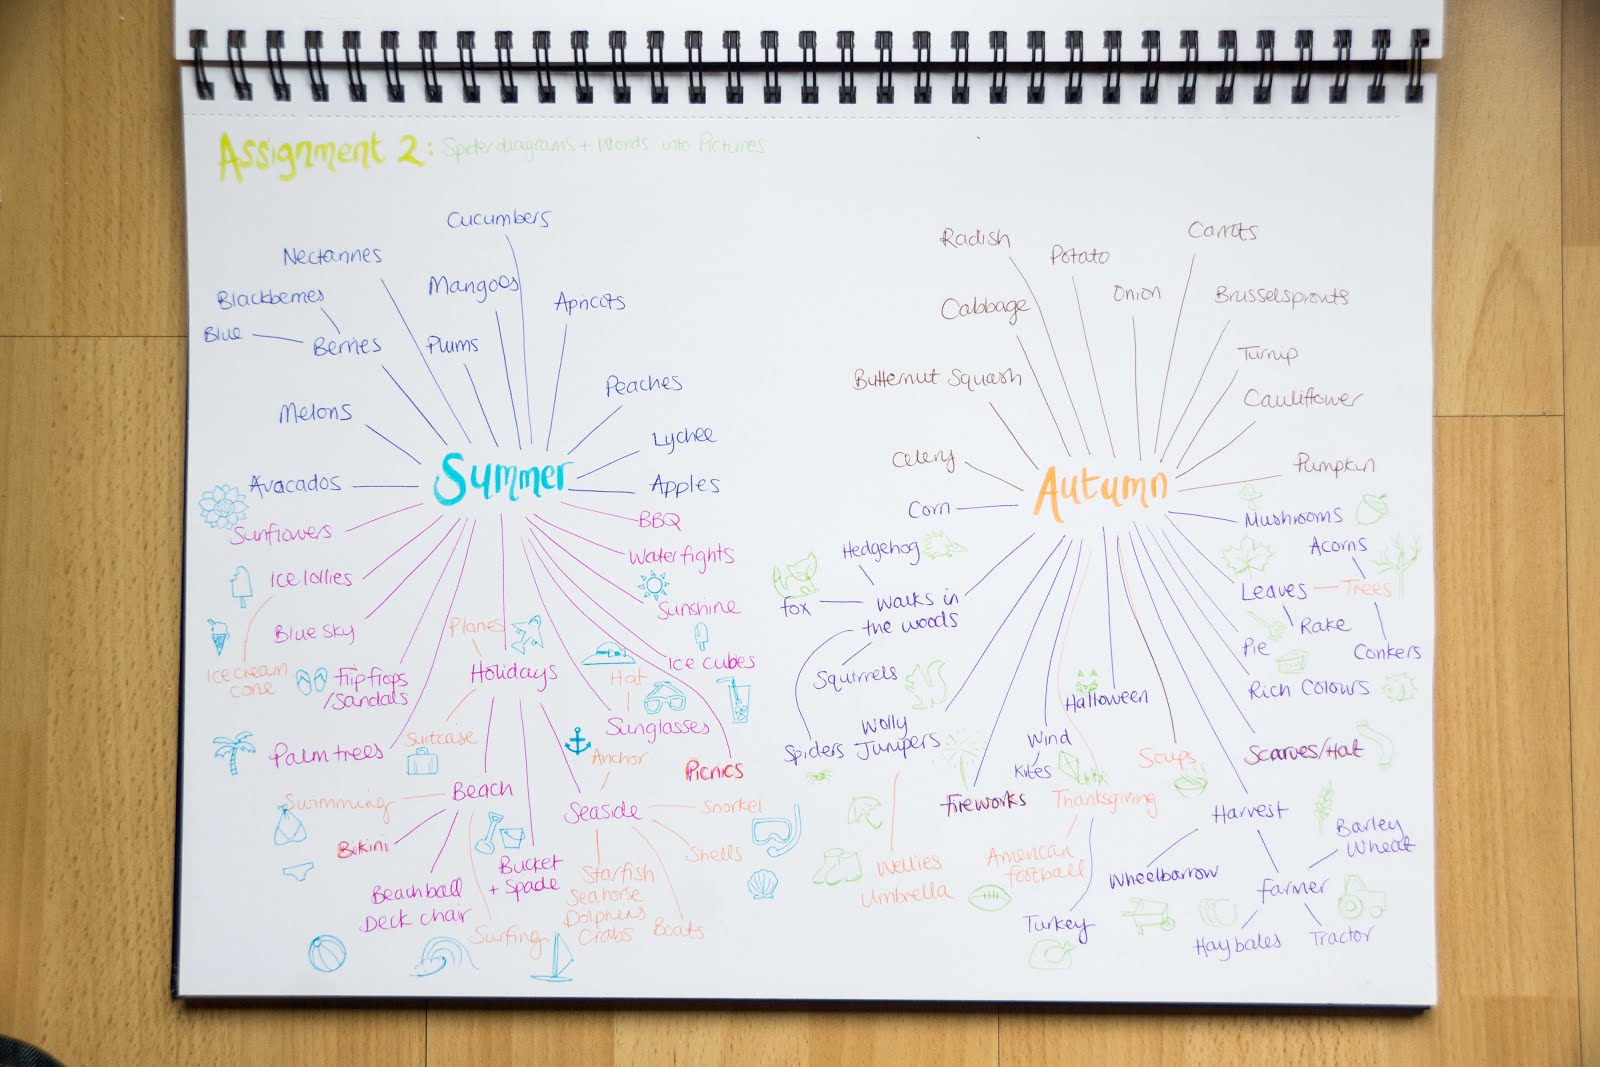 Assignment 2: Spider diagrams + Words into Pictures
Cucumbers
Nectarines
Mangoes
Blackberries
Apricots
Blue
Berries
Plums
Peaches
Melons
Lychee
Summer
Avocados
Apples
Sunflowers
BBQ
Water fights
Ice lollies
Sunshine
Blue sky
Planes
Ice cubes
Ice cream
cone
Flip flops
/Sandals
Holidays
Hat
Sunglasses
Suitcase
Palm trees
Anchor
Picnics
Beach
Swimming
Seaside
Snorkel
Bikini
Shells
Bucket
+ Spade
Beach ball
Deck chair
Starfish
Seahorse
Dolphins
Crabs
Surfing
Boats
Radish
Potato
Carrots
Cabbage
Onion
Brusselsprouts
Turnip
Butternut Squash
Cauliflower
Celery
Pumpkin
Autumn
Corn
Mushrooms
Hedgehog
Acorns
Fox
Walks in
the woods
Leaves
Trees
Rake
Pie
Conkers
Squirrels
Rich Colours
Halloween
Wolly
Jumpers
Spiders
Wind
Kites
Soups
Scarves/Hat
Fireworks
Thanksgiving
Harvest
Barley
Wheat
Wellies
Umbrella
American
football
Wheelbarrow
farmer
Turkey
Hay bales
Tractor